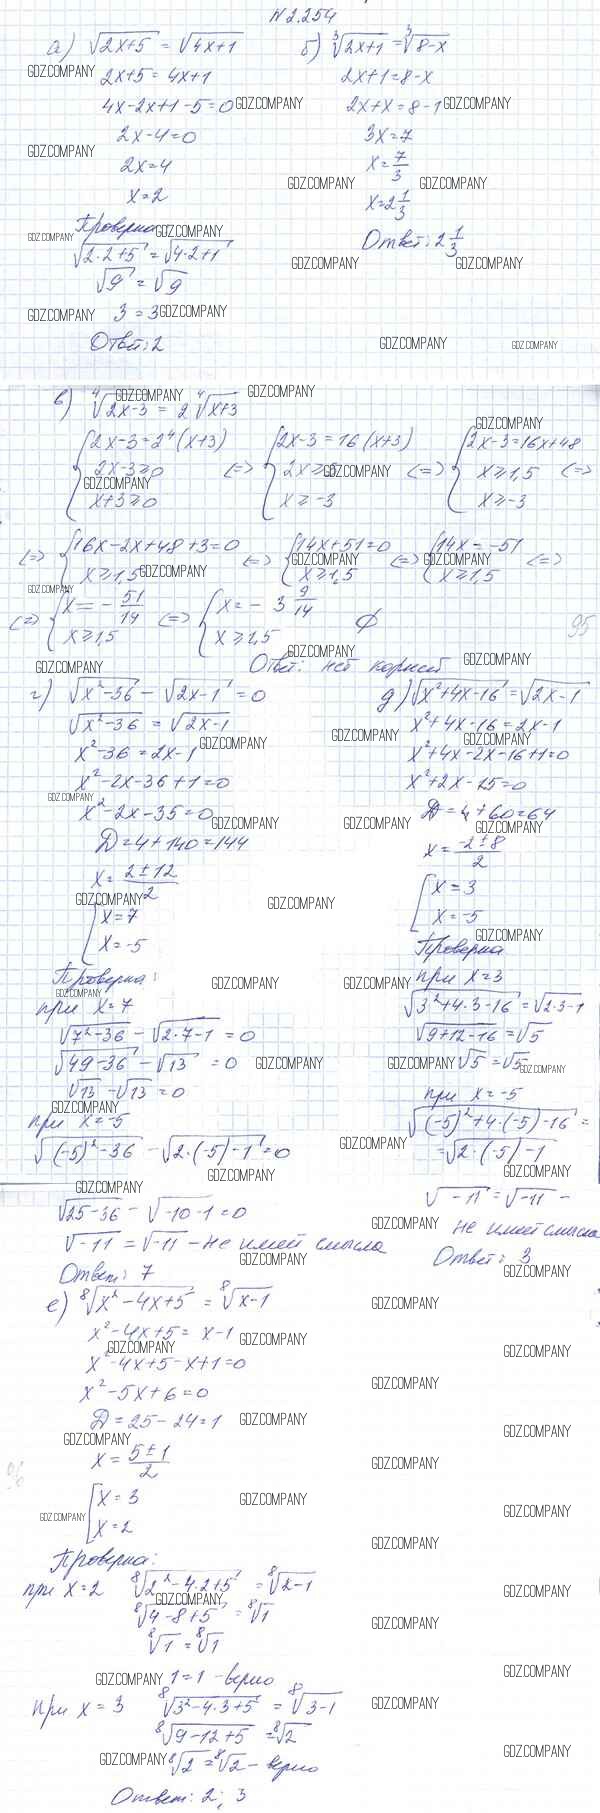 N 2.254
а) √(2x+5) = √(4x+1)
2x+5 = 4x+1
4x-2x+1-5=0
2x-4=0
2x=4
x=2
Проверка
√(2·2+5) = √(4·2+1)
√9 = √9
3 = 3
Ответ: 2
б) ∛(2x+1) = ∛(8-x)
2x+1=8-x
2x+x=8-1
3x=7
x=7/3
x=2 1/3
Ответ: 2 1/3
в) ⁴√(2x-3) = 2 ⁴√(x+3)
{2x-3=2⁴(x+3) 2x-3≥0 x+3≥0 <=> {2x-3=16(x+3) 2x≥3 x≥-3 <=> {2x-3=16x+48 x≥1,5 x≥-3 <=>
<=> {16x-2x+48+3=0 x≥1,5 <=> {14x+51=0 x≥1,5 <=> {14x=-51 x≥1,5 <=>
<=> {x=-51/14 x≥1,5 <=> {x=-3 9/14 x≥1,5 ∅
95
Ответ: нет корней
г) √(x²-36) - √(2x-1) = 0
√(x²-36) = √(2x-1)
x²-36=2x-1
x²-2x-36+1=0
x²-2x-35=0
D=4+140=144
x=(2±12)/2
[x=7
x=-5
Проверка:
при x=7
√(7²-36) - √(2·7-1) = 0
√(49-36) - √13 = 0
√13 - √13 = 0
при x=-5
√((-5)²-36) - √(2·(-5)-1) = 0
√(25-36) - √(-10-1) = 0
√-11 = √-11 - не имеет смысла
Ответ: 7
д) √(x²+4x-16) = √(2x-1)
x²+4x-16=2x-1
x²+4x-2x-16+1=0
x²+2x-15=0
D=4+60=64
x=(-2±8)/2
[x=3
x=-5
Проверка
при x=3
√(3²+4·3-16) = √(2·3-1)
√(9+12-16) = √5
√5 = √5
при x=-5
√((-5)²+4·(-5)-16) =
=√(2·(-5)-1)
√-11 = √-11 -
не имеет смысла
Ответ: 3
е) ⁸√(x²-4x+5) = ⁸√(x-1)
x²-4x+5=x-1
x²-4x+5-x+1=0
x²-5x+6=0
D=25-24=1
x=(5±1)/2
[x=3
x=2
Проверка:
при x=2 ⁸√(2²-4·2+5) = ⁸√(2-1)
⁸√(4-8+5) = ⁸√1
⁸√1 = ⁸√1
1=1 - верно
при x=3 ⁸√(3²-4·3+5) = ⁸√(3-1)
⁸√(9-12+5) = ⁸√2
⁸√2 = ⁸√2 - верно
Ответ: 2; 3
GDZ.COMPANY